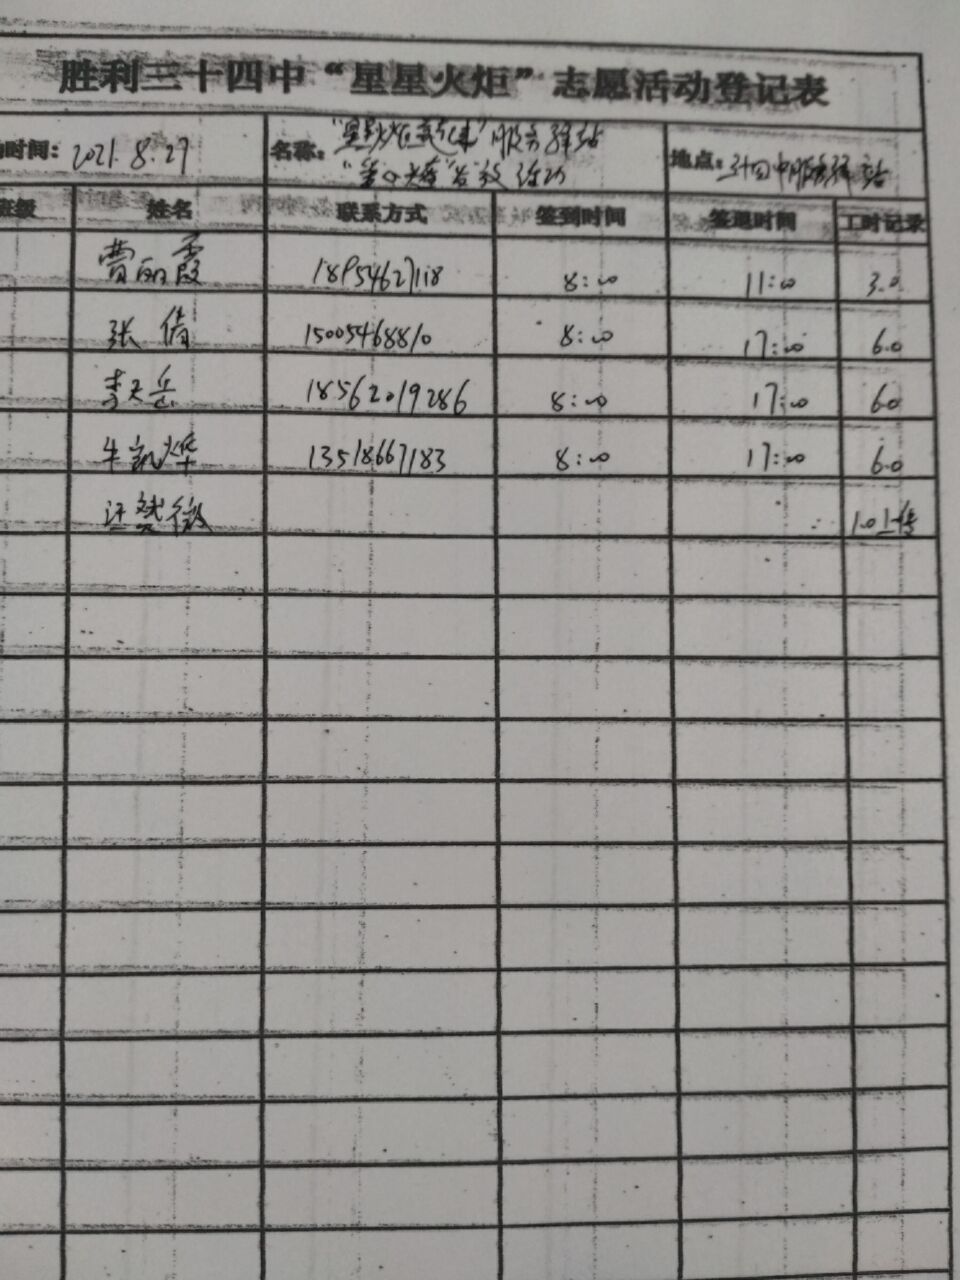 胜利三十四中“星星火炬”志愿活动登记表
动时间： 2021.8.29 名称： 服务驿站 地点： 三十四中服务驿站
活动
班级 姓名 联系方式 签到时间 签退时间 工时记录
曹丽霞 18954627118 8:00 11:00 3.0
张倩 15005468810 8:00 17:00 6.0
李天岳 18562019286 8:00 17:00 6.0
牛凯烨 13518667183 8:00 17:00 6.0
汪赟微 1.0上传